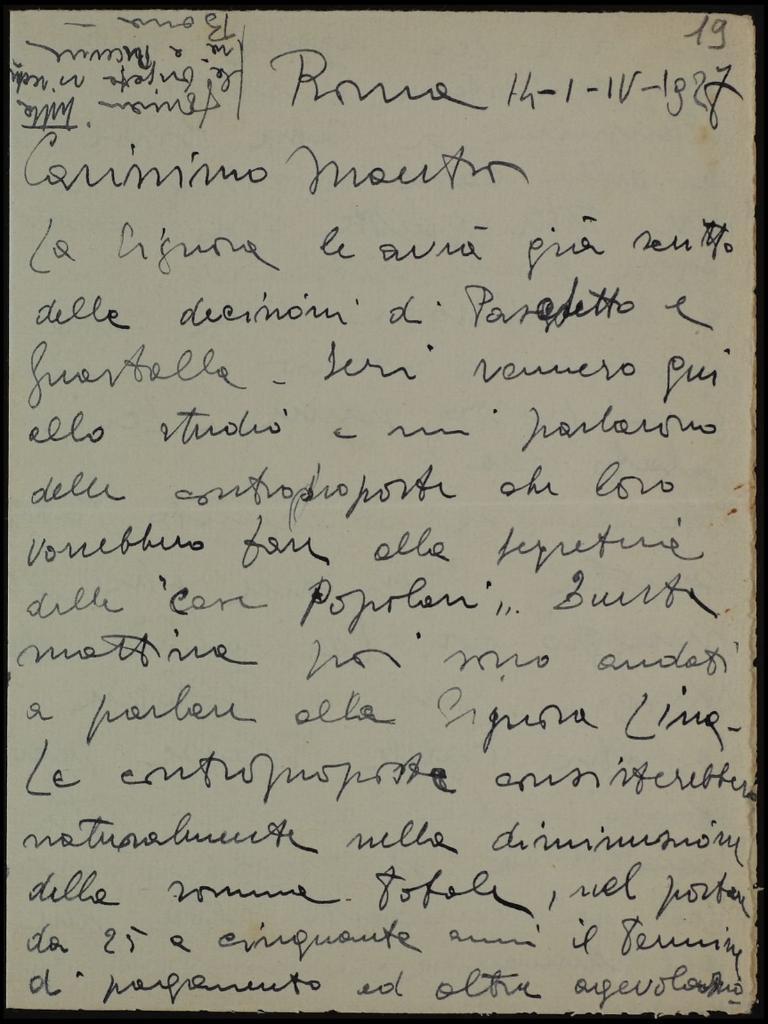 19
Roma 14-I-IV-1927
Carissimo Maestro
La Signora le avrà già scritto
delle decisioni di e
Guastalla - Ieri vennero qui
allo studio e mi parlarono
delle controproposte che loro
vorrebbero fare alla segreteria
delle "Case Popolari". Questa
mattina poi sono andati
a parlare alla Signora Lina -
Le controproposte consisterebbero
naturalmente nella diminuzione
della somma totale, nel portare
da 25 a cinquanta anni il termine
di pagamento ed altre agevolazio